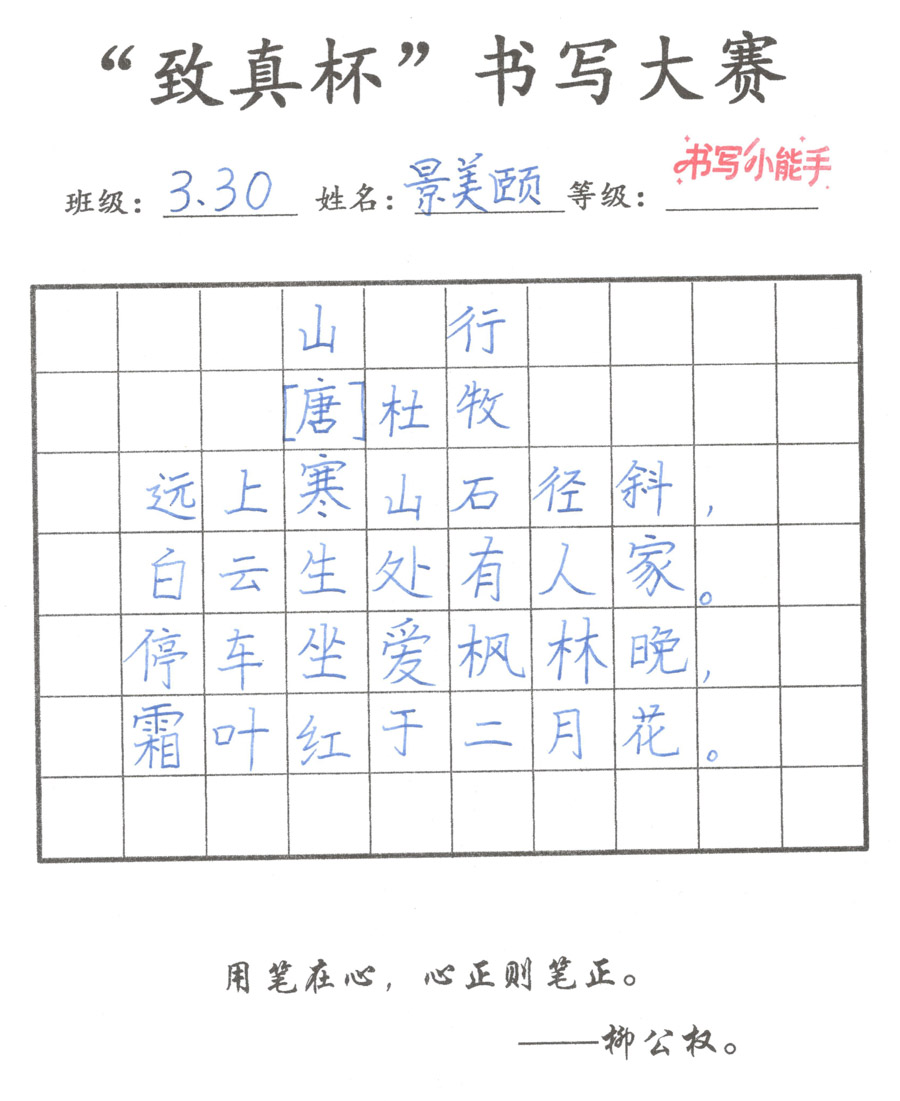 “致真杯”书写大赛
书写小能手
班级：3.30 姓名：景美颐 等级：
山 行
[唐]杜牧
远上寒山石径斜，
白云生处有人家。
停车坐爱枫林晚，
霜叶红于二月花。
用笔在心，心正则笔正。
——柳公权。